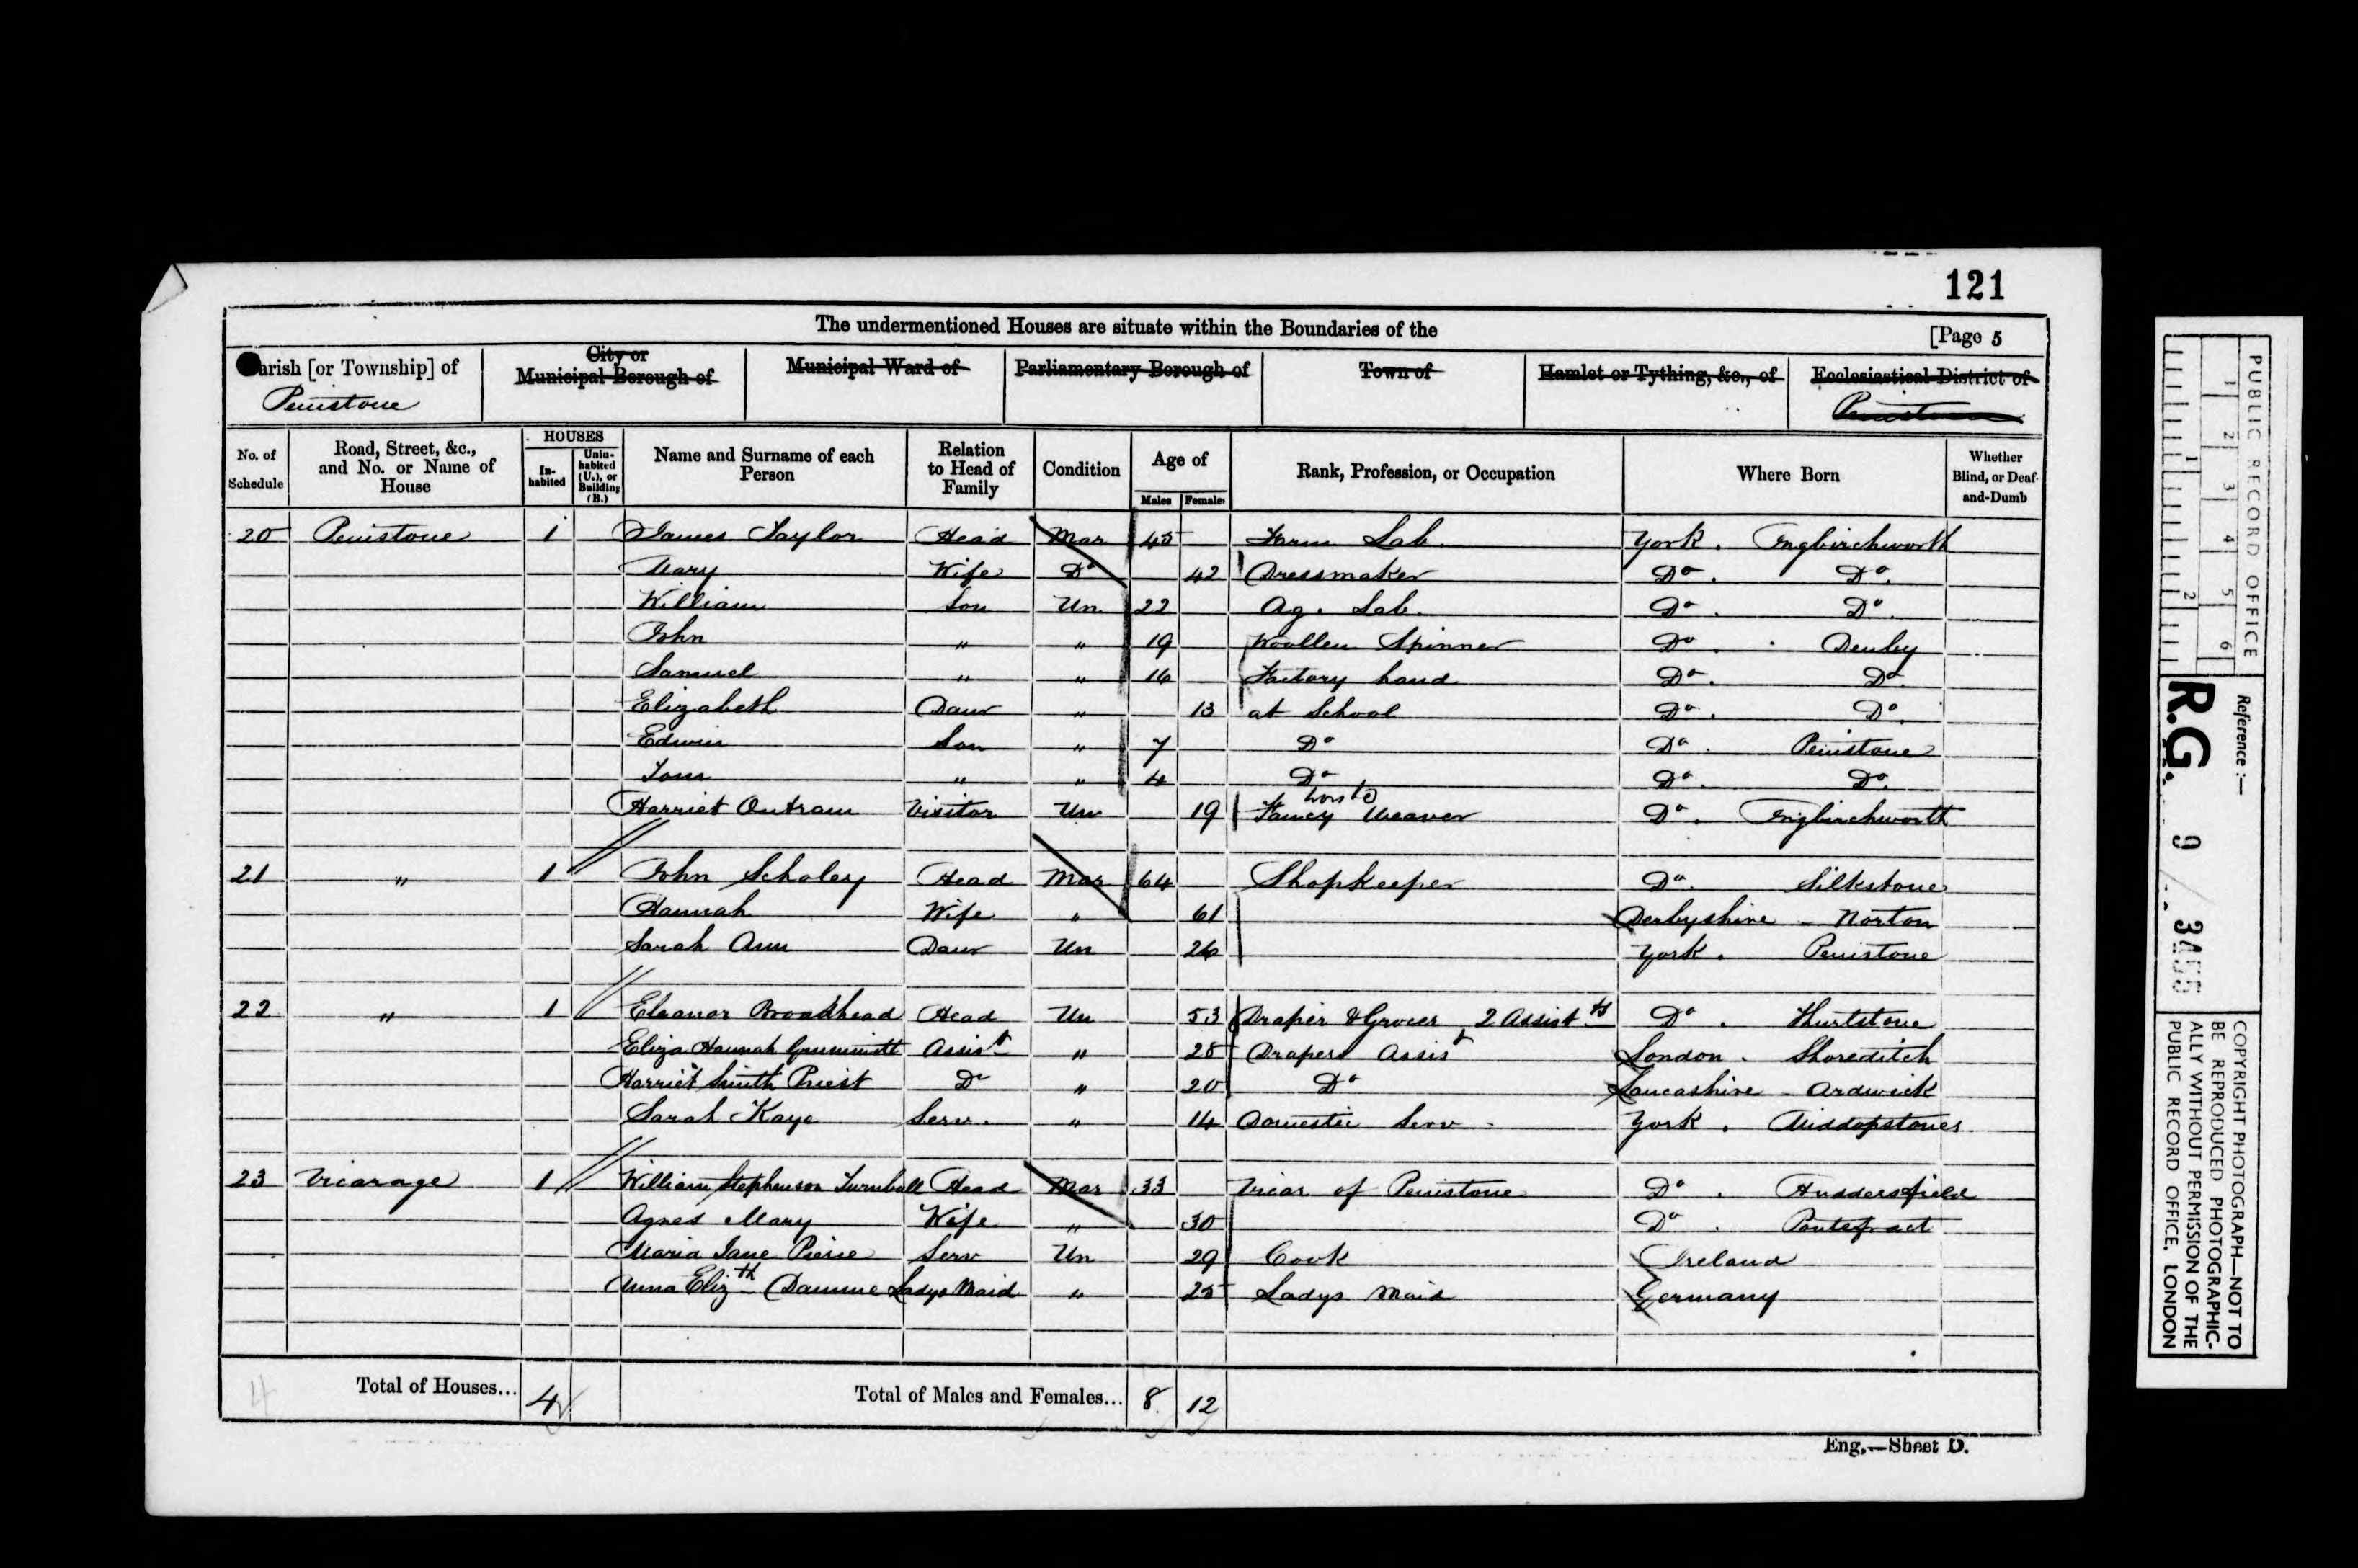 121
The undermentioned Houses are situate within the Boundaries of the
[Page 5
arish [or Township] of
Penistone
City or Municipal Borough of
Municipal Ward of
Parliamentary Borough of
Town of
Hamlet or Tything, &c., of
Ecclesiastical District of
Penistone
No. of Schedule
Road, Street, &c., and No. or Name of House
HOUSES
In-habited
Unin-habited (U.), or Building (B.)
Name and Surname of each Person
Relation to Head of Family
Condition
Age of
Males
Females
Rank, Profession, or Occupation
Where Born
Whether Blind, or Deaf-and-Dumb
20 Penistone 1 James Taylor Head Mar 45 Farm Lab. York. Ingbirchworth
Mary Wife Do 42 Dressmaker Do. Do.
William Son Un 22 Ag. Lab. Do. Do.
John " " 19 Woollen Spinner Do. Denby
Samuel " " 16 Factory hand Do. Do.
Elizabeth Daur " 13 at School Do. Do.
Edwin Son " 7 Do Do. Penistone
Tom " " 4 Do Do. Do.
Harriet Outram Visitor Un 19 Fancy Weaver Do. Ingbirchworth
21 " 1 John Scholey Head Mar 64 Shopkeeper Do. Silkstone
Hannah Wife " 61 Derbyshire - Norton
Sarah Ann Daur Un 26 York. Penistone
22 " 1 Eleanor Broadhead Head Un 53 Draper & Grocer, 2 Assists Do. Thurlstone
Eliza Hannah Assist " 28 Drapers Assist London. Shoreditch
Harriet Smith Priest Do " 20 Do Lancashire - Ardwick
Sarah Kaye Serv. " 14 Domestic Serv. York. Middopstones
23 Vicarage 1 William Stephenson Turnbull Head Mar 33 Vicar of Penistone Do. Huddersfield
Agnes Mary Wife " 30 Do. Pontefract
Maria Jane Serv Un 29 Cook Ireland
Anna Elizth Ladys Maid " 25 Ladys Maid Germany
Total of Houses... 4 Total of Males and Females... 8 12
4
Eng.—Sheet D.
PUBLIC RECORD OFFICE
1 2 3 4 5 6
1 2
Reference:—
R.G. 9 / 3455
COPYRIGHT PHOTOGRAPH—NOT TO
BE REPRODUCED PHOTOGRAPHIC-
ALLY WITHOUT PERMISSION OF THE
PUBLIC RECORD OFFICE, LONDON